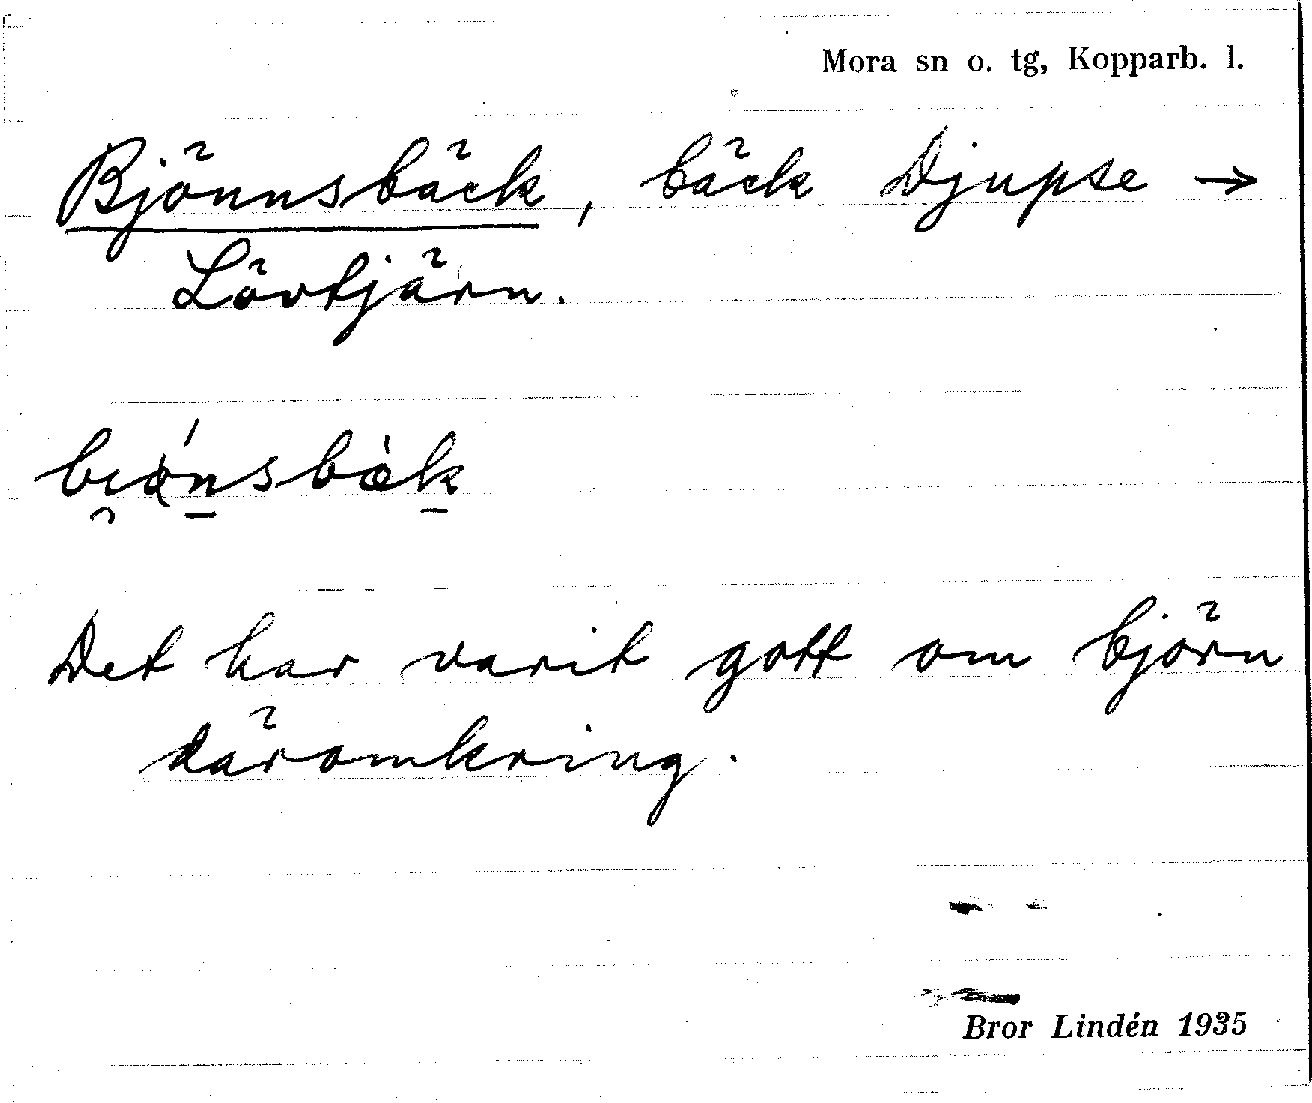 Mora sn o. tg, Kopparb. l.
Bjönnsbäck, bäck Djupse →
Lövtjärn.
Det har varit gott om björn
däromkring.
Bror Lindén 1935